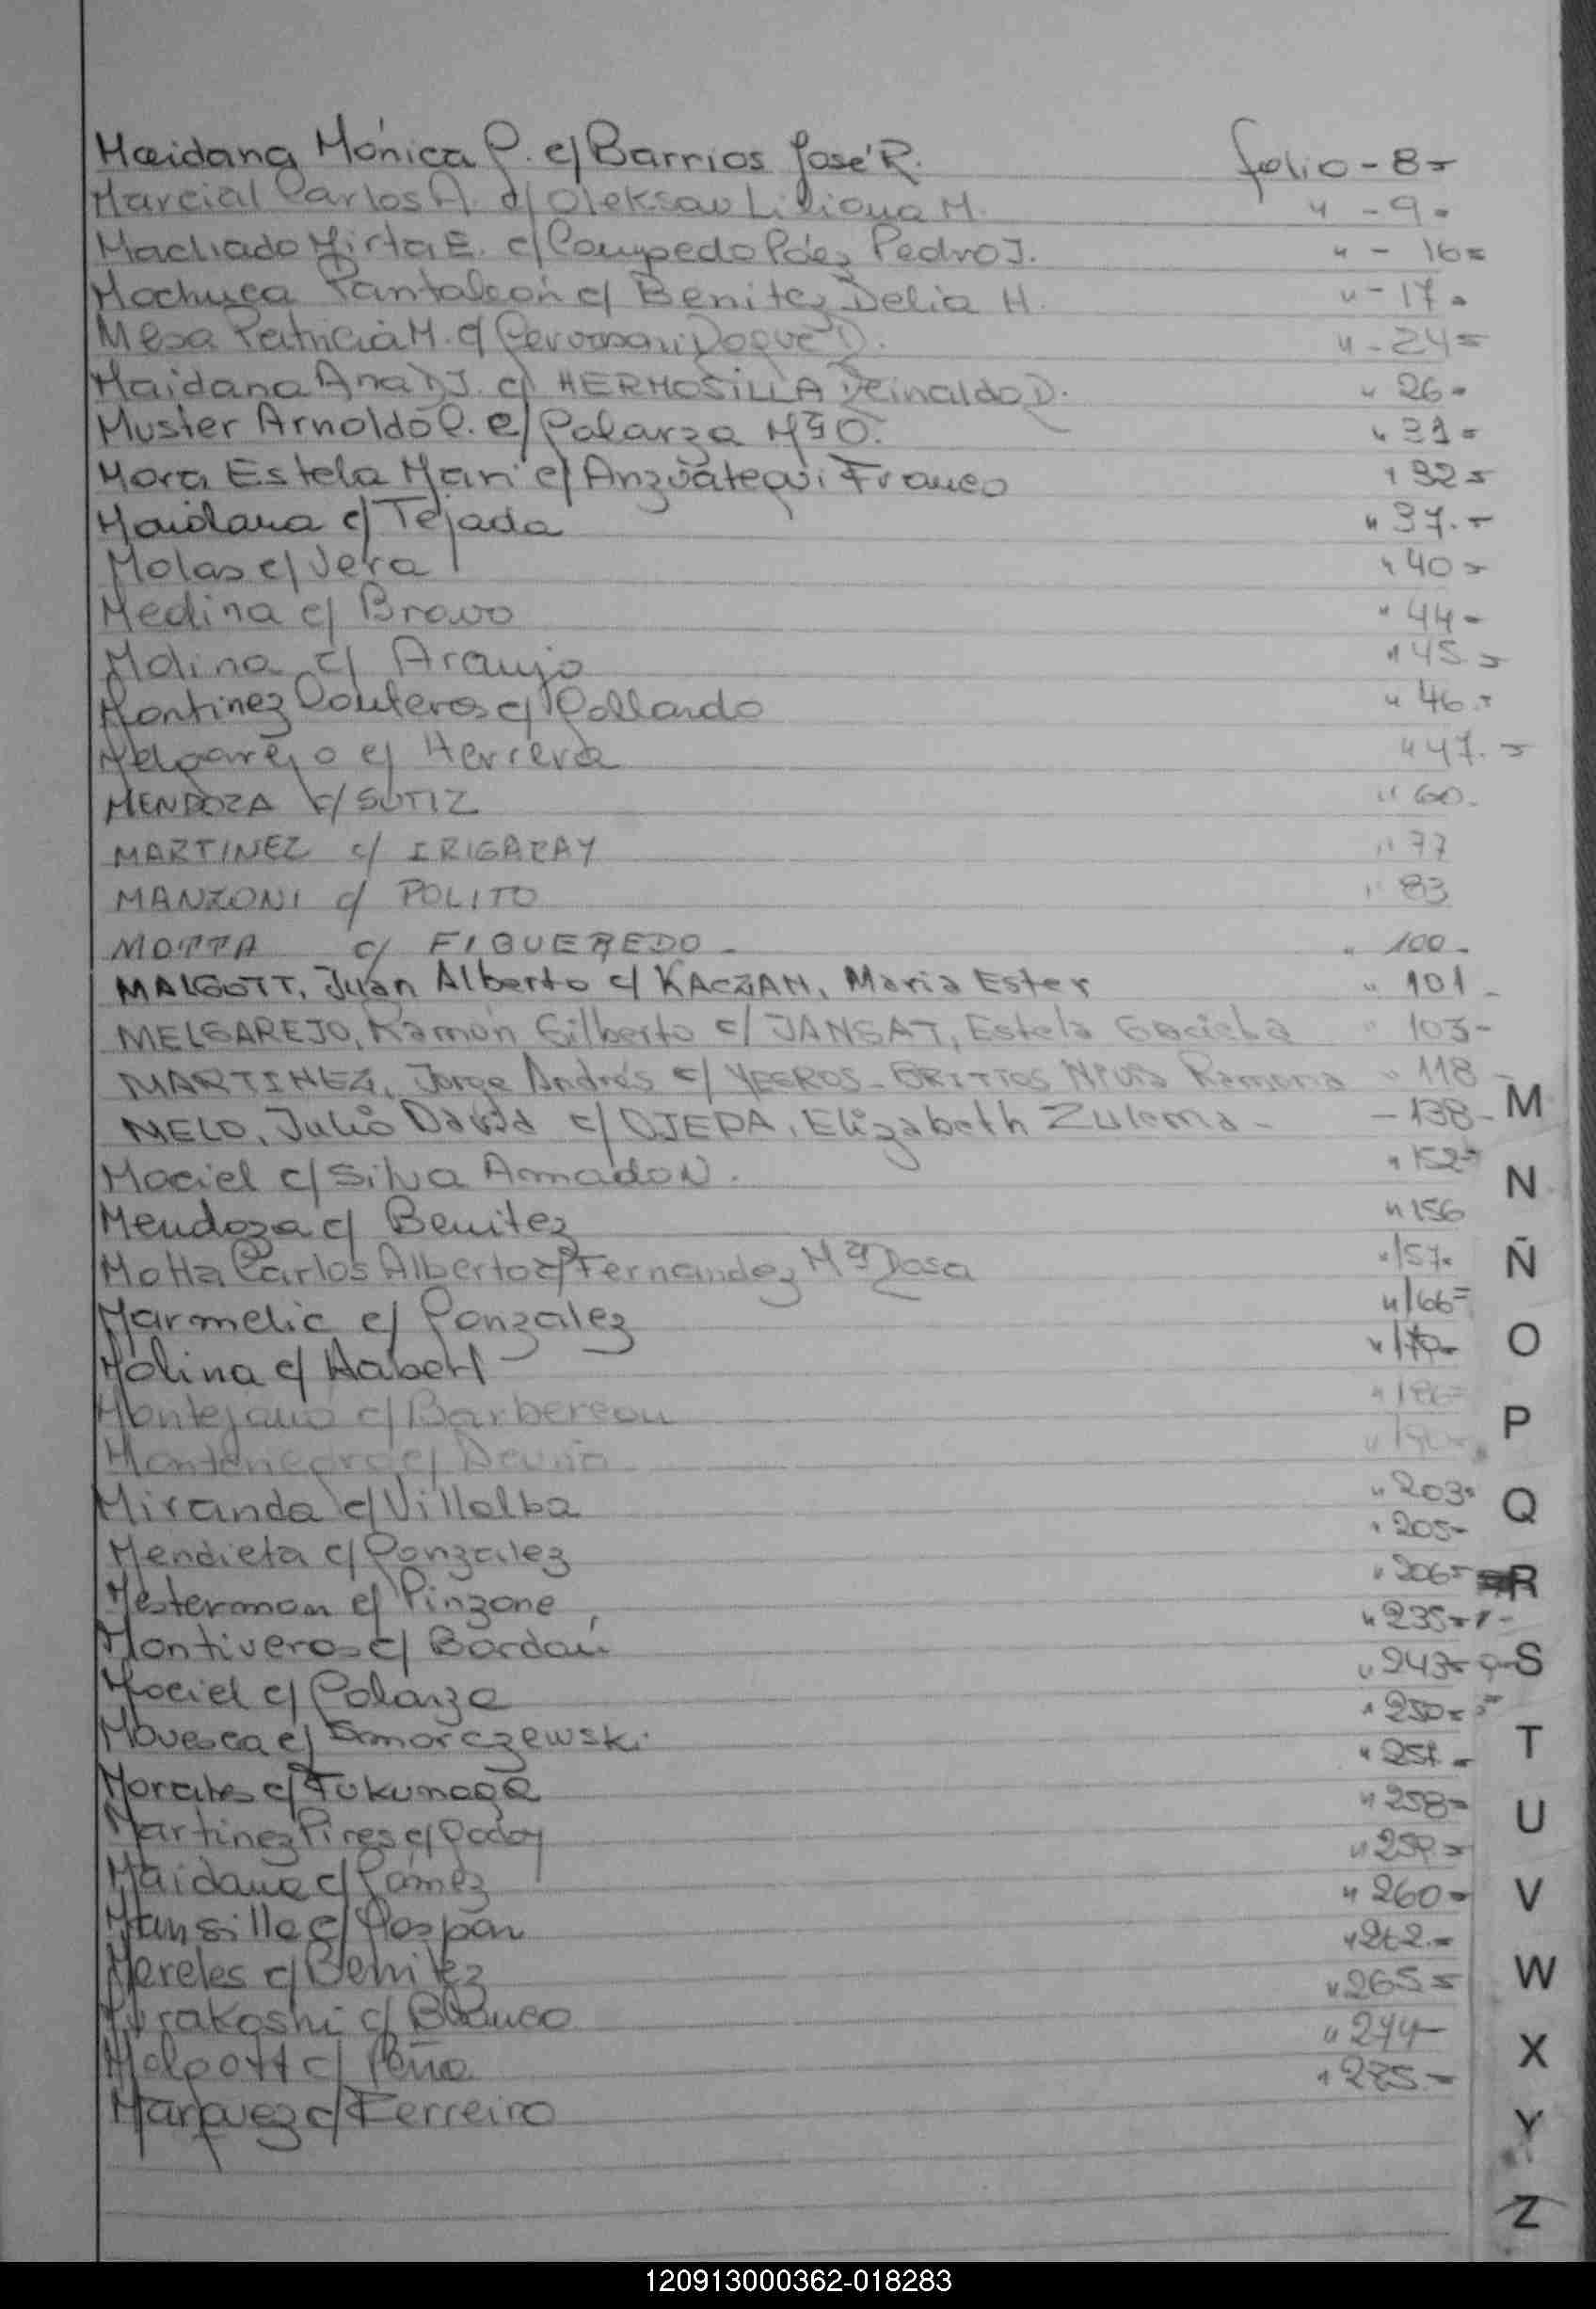 Maidana Mónica G. c/ Barrios José R. folio - 8 -
Marcial Carlos A. c/ Oleksau Liliana M. " - 9 -
Machado Mirta E. c/ Campedo Páez Pedro J. " - 16 =
Machuca Pantaleón c/ Benitez Delia H. " - 17 -
Mesa Patricia M. c/ Roque D. " - 24 =
Maidana Ana D J. c/ HERMOSILLA Reinaldo D. " 26 -
Muster Arnoldo C. c/ Galarza Mª O. " 31 =
Mora Estela Mari c/ Anzuategui Franco " 32 =
Maidana c/ Tejada " 37. -
Molas c/ Vera " 40 =
Medina c/ Bravo " 44 -
Molina c/ Araujo " 45 =
Martinez Canteros c/ Gallardo " 46. =
Melgarejo c/ Herrera " 47. =
MENDOZA c/ SOTIZ " 60.
MARTINEZ c/ IRIGARAY " 77
MANZONI c/ POLITO " 83
MOTTA c/ FIGUEREDO - " 100 -
MALGOTT, Juan Alberto c/ KACZAN, Maria Ester " 101 -
MELGAREJO, Ramón Gilberto c/ JANSAT, Estela Graciela " 103 -
MARTINEZ, Jorge Andrés c/ Ramona " 118 -
MELO, Julio David c/ OJEDA, Elizabeth Zulema - - 138 -
M
Maciel c/ Silva Amado N. " 152 =
N
Mendoza c/ Benitez " 156
Motta Carlos Alberto c/ Fernandez Mª Rosa " 157 -
Ñ
Marmelic c/ Gonzalez " 166 =
Molina c/ Habert
O
Montejano c/ Barbereou
P
Montenegro c/
Miranda c/ Villalba " 203 -
Q
Mendieta c/ Gonzalez " 205 -
Mesterman c/ Pinzone " 206 =
R
Montivero c/ Bordau " 235 -
Maciel c/ Galarza " 243 -
S
c/ Smorczewski " 250 =
Morales c/ Fukunaga " 257. -
T
Martinez Pires c/ Godoy " 258 =
U
Maidana c/ Gómez " 259 =
Mansilla c/ " 260 =
V
Mereles c/ Benitez " 262. =
Murakoshi c/ Blanco " 265 =
W
Malgott c/ Peña " 274 -
X
Marquez c/ Ferreiro " 275. -
Y
Z
120913000362-018283